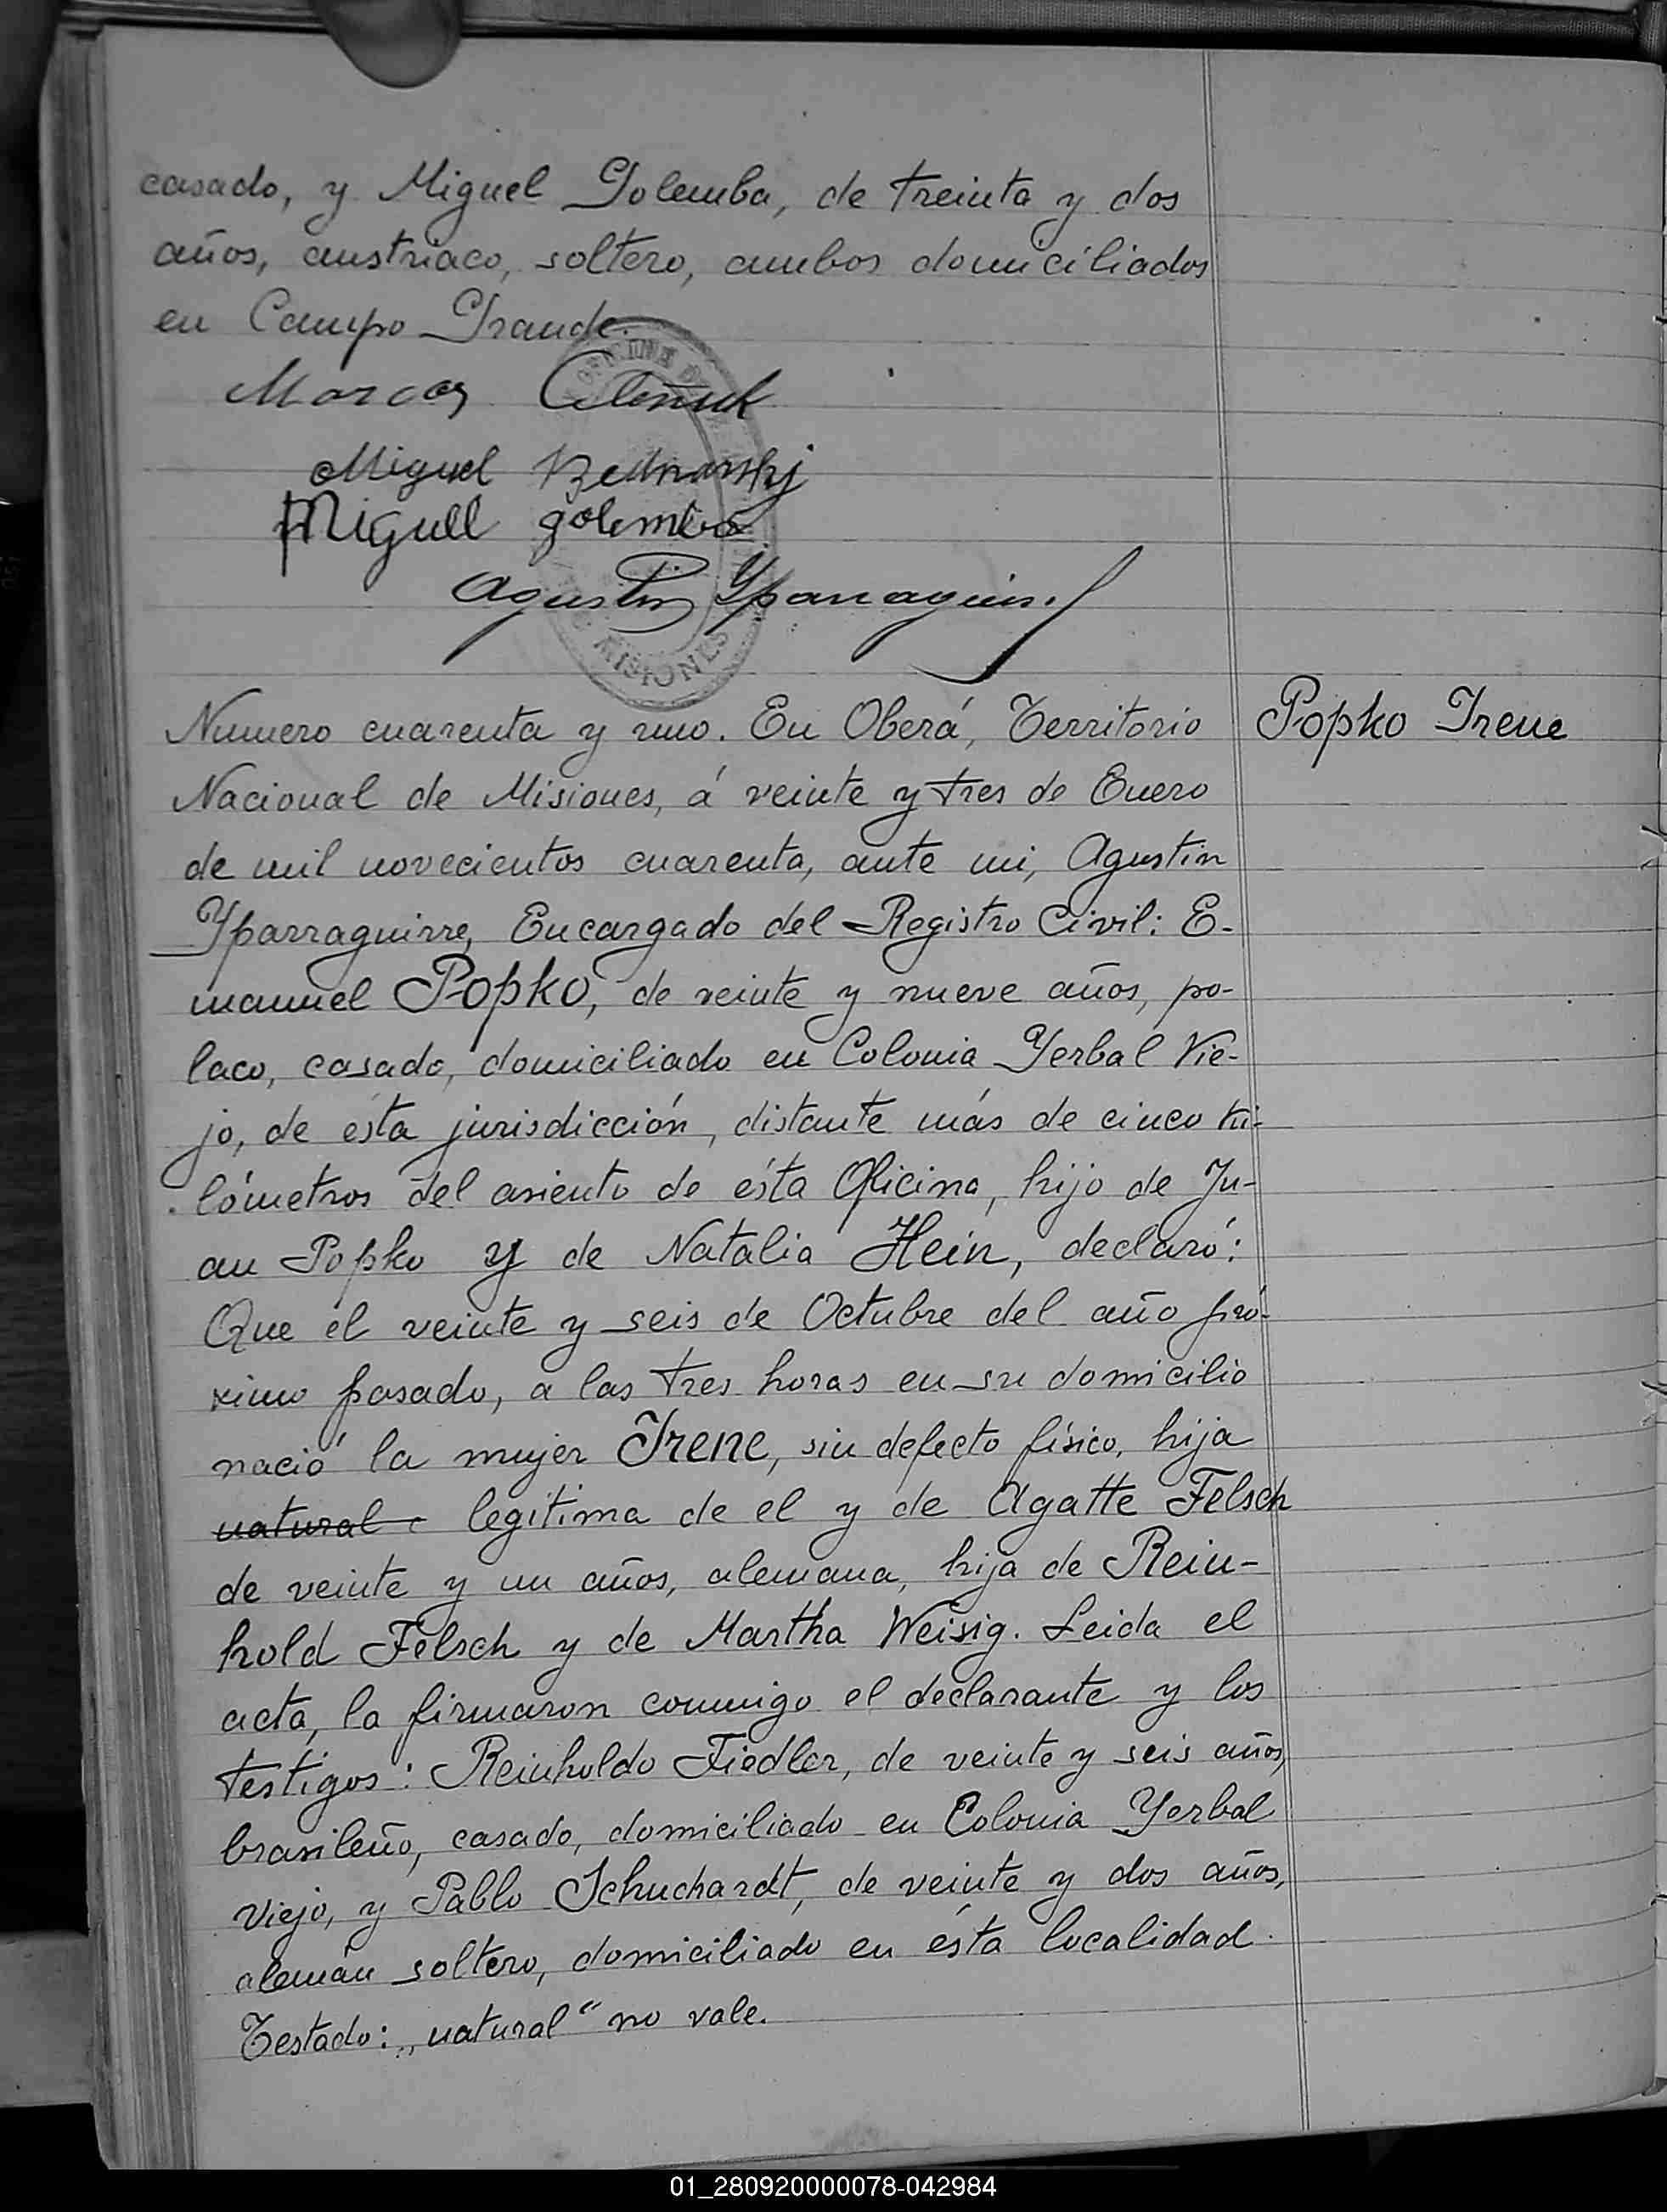 casado, y Miguel Golemba, de treinta y dos
años, austriaco, soltero, ambos domiciliados
en Campo Grande.
Marcos
Miguel Bednarskj
Miguell golemba
Agustin Yparraguirre
MISIONES
Numero cuarenta y uno. En Oberá, Territorio
Popko Irene
Nacional de Misiones, á veinte y tres de Enero
de mil novecientos cuarenta, ante mi, Agustin
Yparraguirre, Encargado del Registro Civil: E-
manuel Popko, de veinte y nueve años, po-
laco, casado, domiciliado en Colonia Yerbal Vie-
jo, de ésta jurisdicción, distante más de cinco ki-
lómetros del asiento de ésta Oficina, hijo de Ju-
an Popko y de Natalia Hein, declaró:
Que el veinte y seis de Octubre del año pró-
ximo pasado, a las tres horas en su domicilio
nació la mujer Irene, sin defecto físico, hija
natural legítima de el y de Agatte Felsch
de veinte y un años, alemana, hija de Rein-
hold Felsch y de Martha Weisig. Leida el
acta, la firmaron conmigo el declarante y los
testigos: Reinholdo Fiedler, de veinte y seis años,
brasileño, casado, domiciliado en Colonia Yerbal
Viejo, y Pablo Schuchardt, de veinte y dos años,
alemán soltero, domiciliado en ésta localidad.
Testado: „natural“ no vale.
01_280920000078-042984